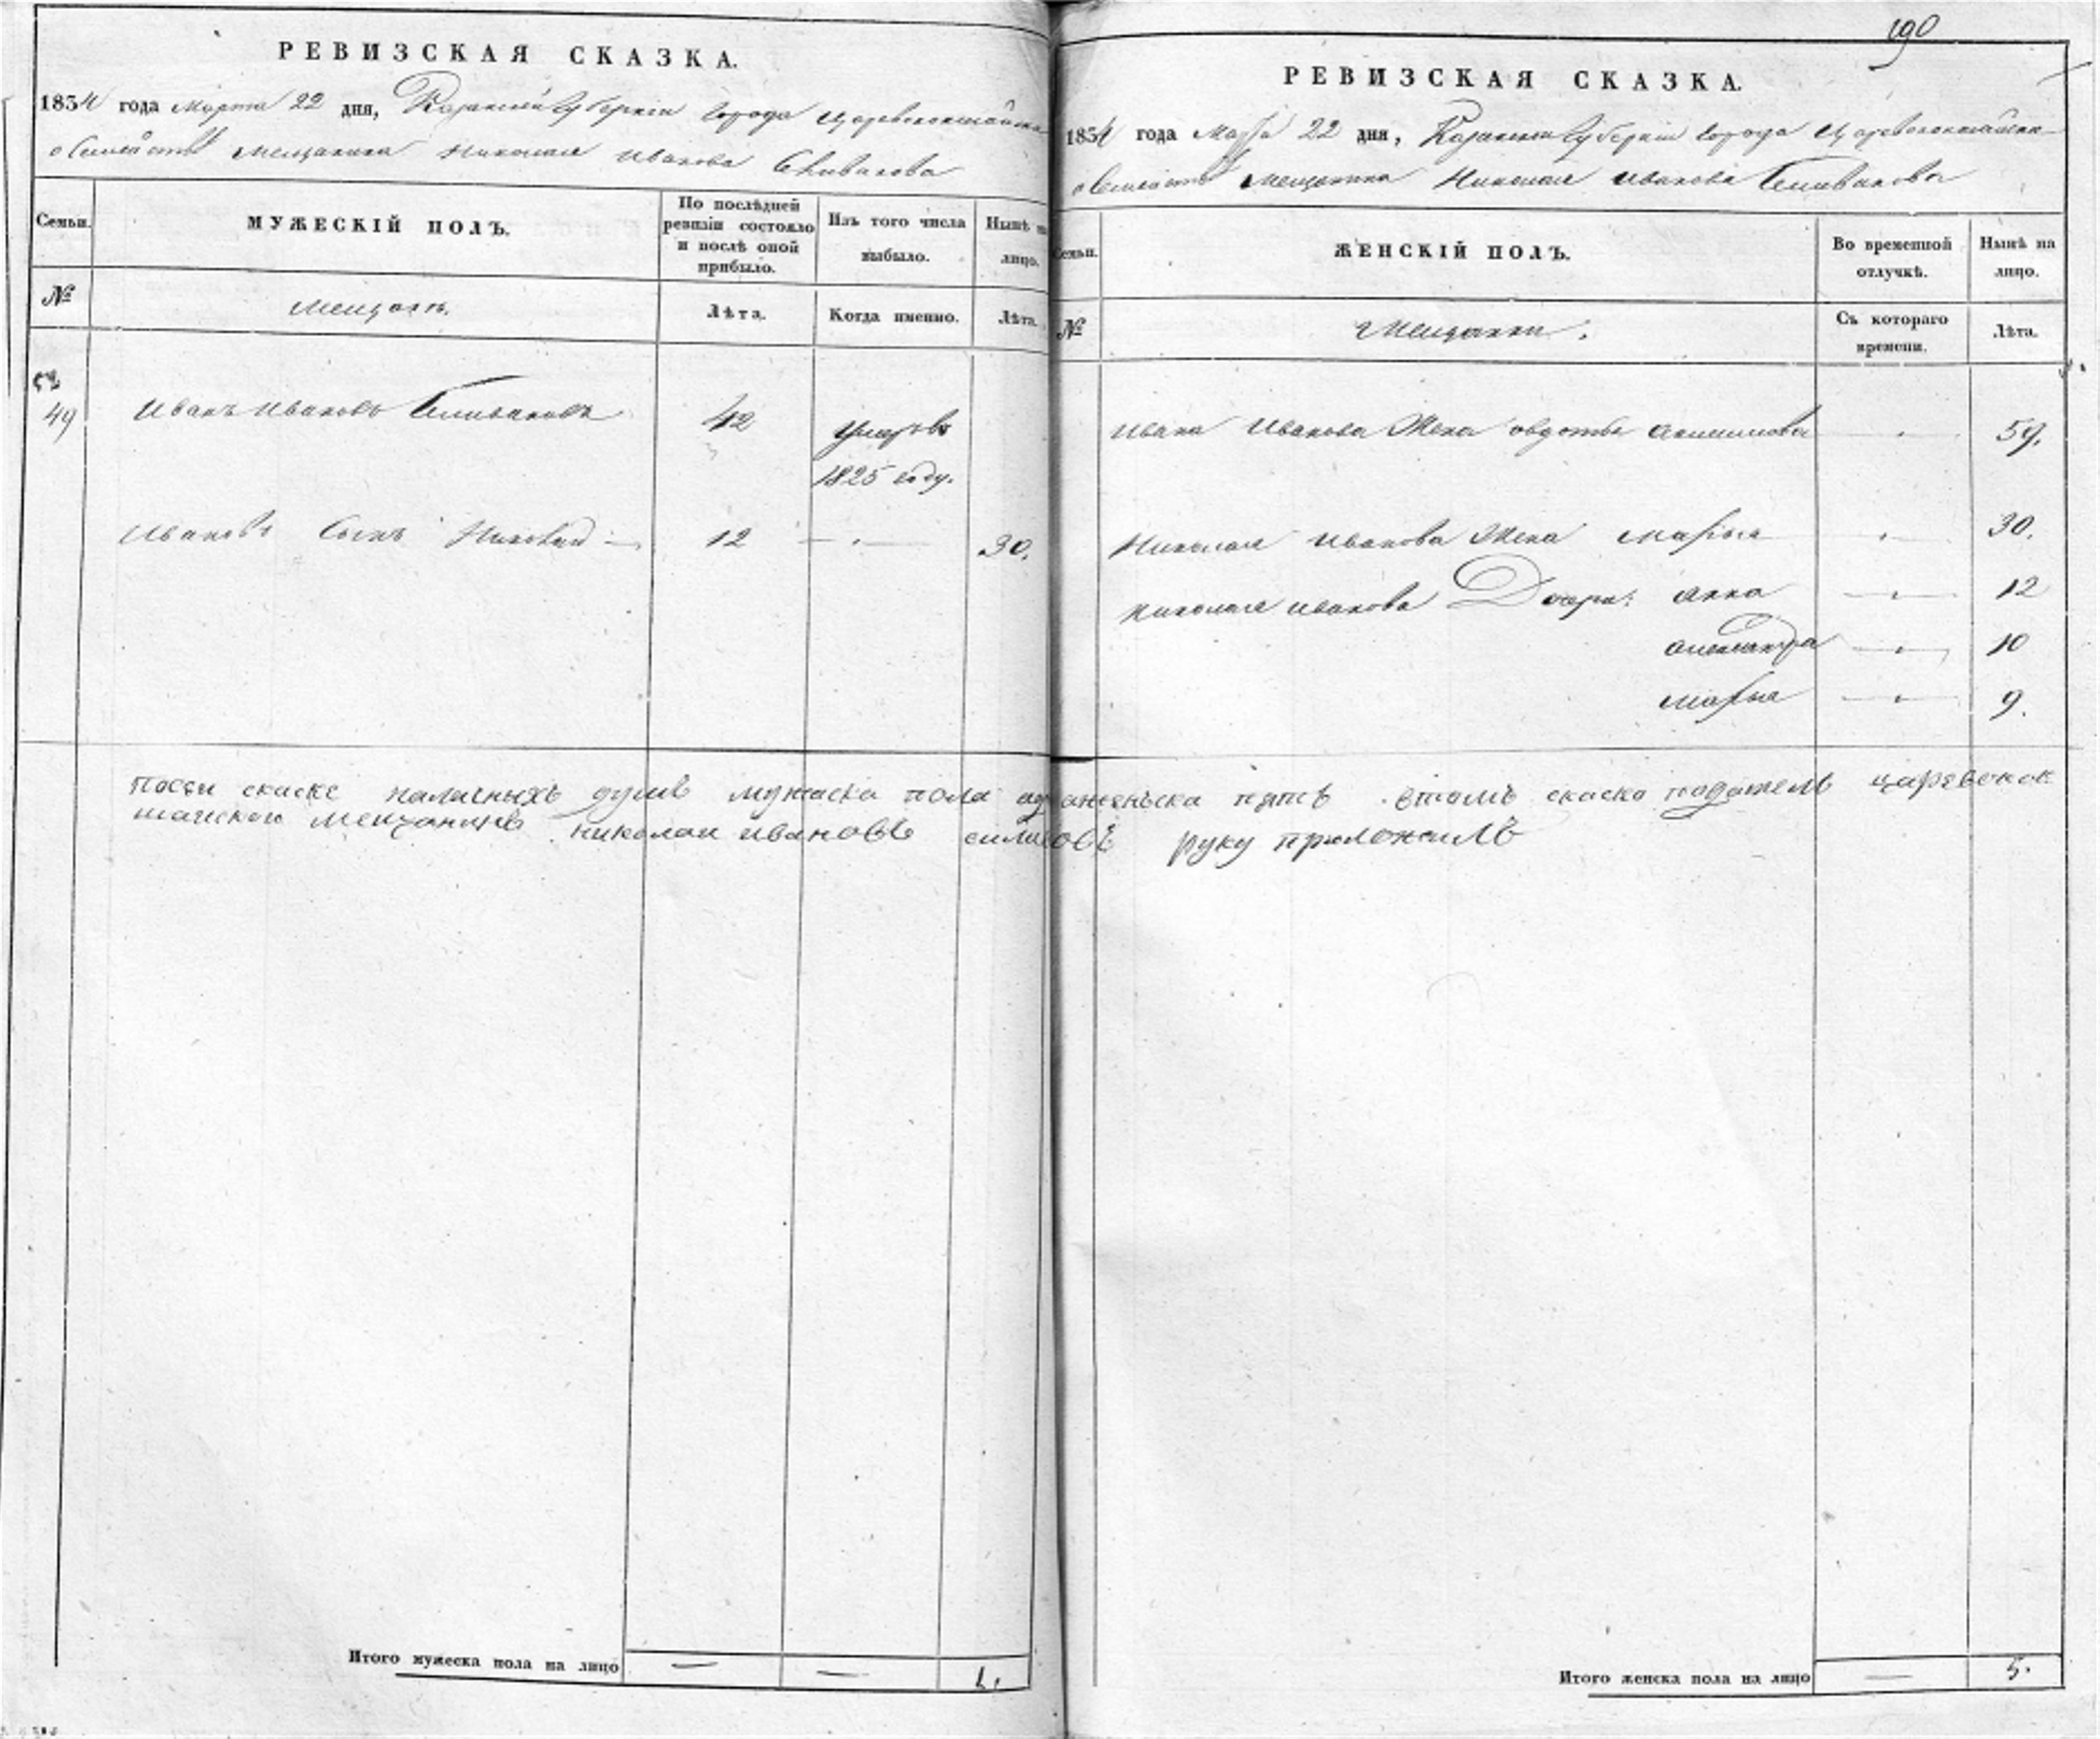 190
РЕВИЗСКАЯ СКАЗКА.
1834 года Марта 22 дня, Казанской Губернии города Царевококшайска
о Семействе Мещанина Николая Иванова
Семьи.
МУЖЕСКІЙ ПОЛЪ.
По послѣдней ревизіи состояло и послѣ оной прибыло.
Изъ того числа выбыло.
Нынѣ на лицо.
№
Мещане.
Лѣта.
Когда именно.
Лѣта.
49
Иванъ Ивановъ
42
Умеръ въ
1825 году.
Ивановъ Сынъ Николай
12
30.
РЕВИЗСКАЯ СКАЗКА.
1834 года Марта 22 дня, Казанской Губерніи города Царевококшайска
о Семействе Мещанина Николая Иванова
Семьи.
ЖЕНСКІЙ ПОЛЪ.
Во временной отлучкѣ.
Нынѣ на лицо.
№
Мещанки.
Съ котораго времени.
Лѣта.
Ивана Иванова Жена овдотья
59.
Николая Иванова Жена марья
30.
Николая Иванова Дочери: анна
12
александра
10
марья
9.
посеи скаске наличныхъ душъ мужеска пола женска пять. втомъ скаско податель царевокок
шаискои мещанинъ николаи ивановъ руку приложилъ
Итого мужеска пола на лицо — — 1.
Итого женска пола на лицо — 5.